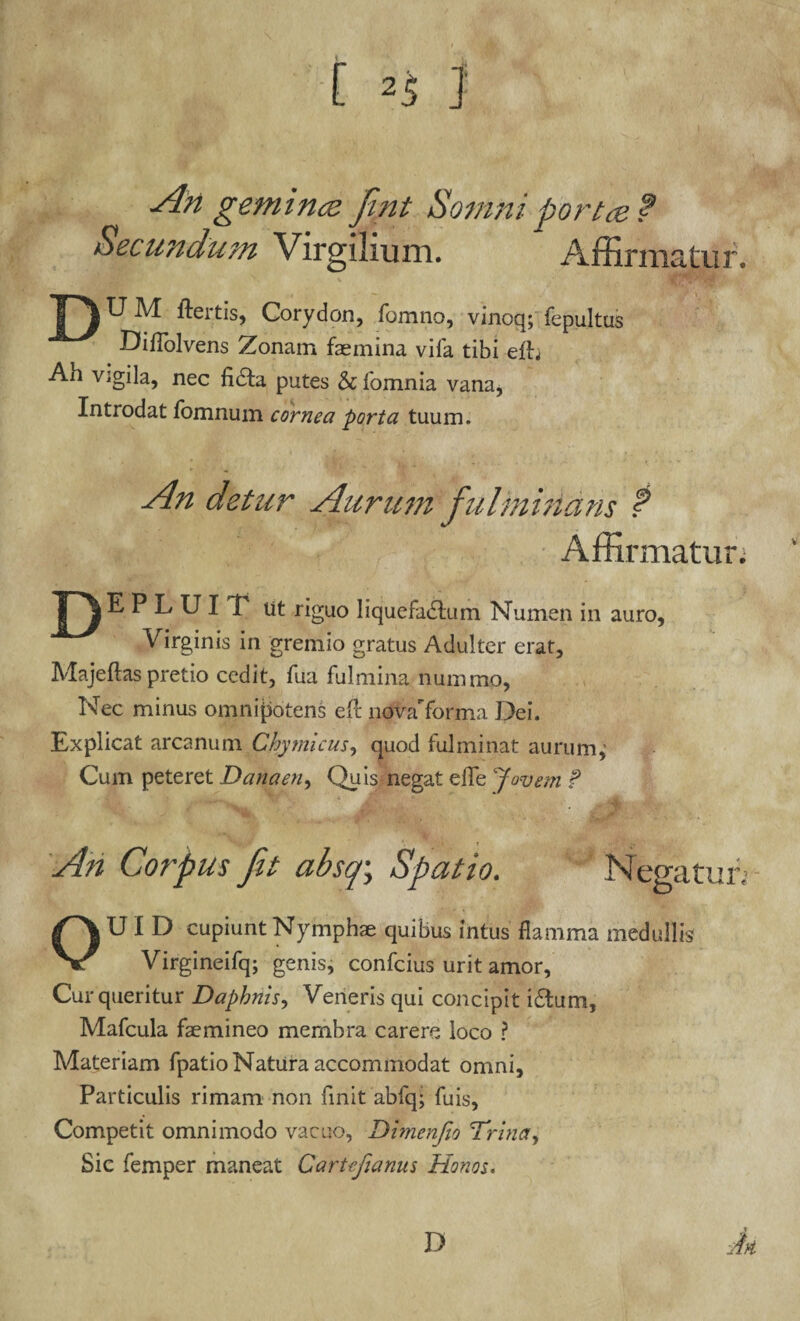 [ 25 ]
An geminæ ſint Somni portæ ?
Secundum Virgilium. Affirmatur.
DUM ſtertis, Corydon, ſomno, vinoq; ſepultus
Diſſolvens Zonam fæmina viſa tibi eſt;
Ah vigila, nec ficta putes & ſomnia vana,
Introdat ſomnum cornea porta tuum.
An detur Aurum fulminans ?
Affirmatur.
DEPLUIT ut riguo liquefactum Numen in auro,
Virginis in gremio gratus Adulter erat,
Majeſtas pretio cedit, ſua fulmina nummo,
Nec minus omnipotens eſt nova forma Dei.
Explicat arcanum Chymicus, quod fulminat aurum,
Cum peteret Danaen, Quis negat eſſe Jovem ?
An Corpus ſit absq; Spatio. Negatur.
QUID cupiunt Nymphæ quibus intus flamma medullis
Virgineiſq; genis, conſcius urit amor,
Cur queritur Daphnis, Veneris qui concipit ictum,
Maſcula fæmineo membra carere loco ?
Materiam ſpatio Natura accommodat omni,
Particulis rimam non ſinit abſq; ſuis,
Competit omnimodo vacuo, Dimenſio Trina,
Sic ſemper maneat Carteſianus Honos.
D An